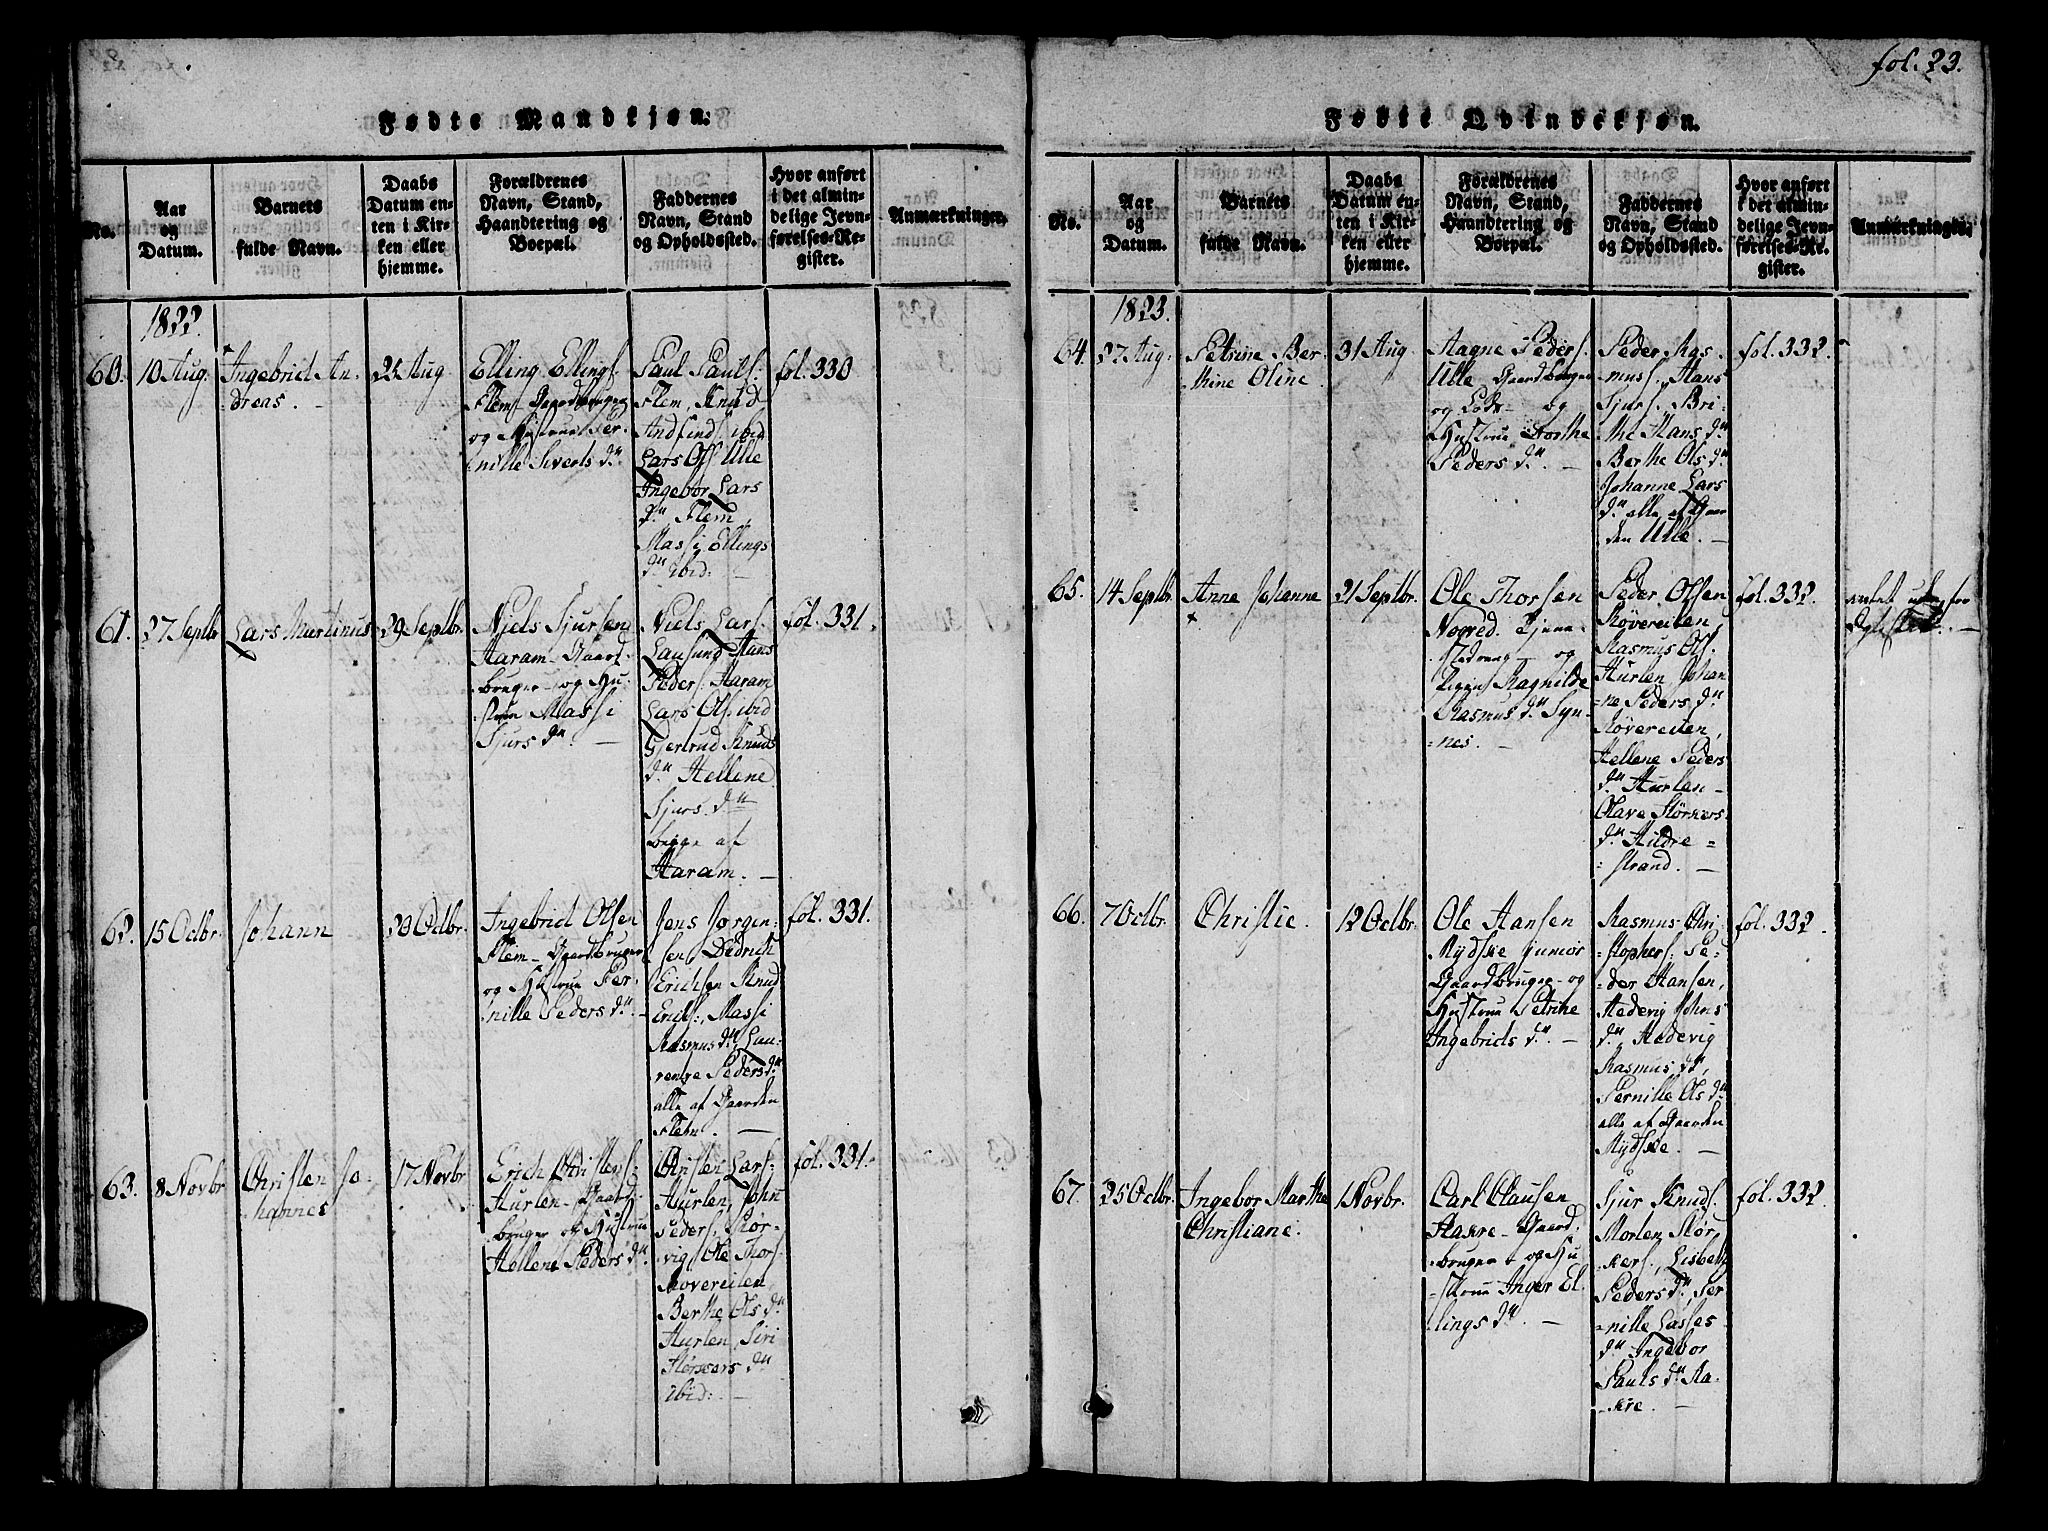 fol. 23.
Fødte Mandkjøn.
No.
Aar
og
Datum.
Barnets
fulde Navn.
Daabs
Datum en-
ten i Kir-
ken eller
hjemme.
Forældrenes
Navn, Stand,
Haandtering og
Boepæl.
Faddernes
Navn, Stand
og Opholdssted.
Hvor anført
i det almin-
delige Jevn-
førelses-Re-
gister.
Anmærkninger.
1822.
60.
10 Aug.
Ingebrict An-
dreas.
25 Aug
Elling Ellings:
Flem- Gaardbruger
og Hustrue Per-
nille Siverts d.
Paul Pauls:
Flem, Knud
Andfinds ibid
Lars Ols Ulle
Ingebor Lars
d. Flem,
Massi Ellings
d. ibid:
fol. 330
61.
27 Septbr
Lars Martinus
29 Septbr.
Niels Sjursen
Haram- Gaard-
bruger- og Hu-
strue Massi
Sjurs d.
Niels Lars:
Lausund Hans
Peders: Haram
Lars Ols ibid
Gjertrud Knuds
d. Hellene
Sjurs d.
begge af
Haram.
fol. 331.
62.
15 Octbr.
Johann
20 Octbr.
Ingebrict Olsen
Flem- Gaardbruger
og Hustrue Per-
nille Peders d.
Jens Jørgen-
sen Dedrich
Erichsen Knud
Erichs:, Massi
Rasmus d., Lau-
rense Peders d.
alle af Gaarden
Flem.
fol. 331.
63.
8 Novbr
Christen Jo-
hannes
17 Novbr
Erich Christens:
Hurlen- Gaard-
bruger og Hustrue
Hellene Peders d.
Christen Lars:
Hurlen, John
Peders:, Stør-
vig, Ole Thors:
Røvereiten
Berthe Ols d.
Hurlen, Siri
Størkers d.
ibid:
fol. 331.
Fødte Qvindekjøn.
No.
Aar
og
Datum.
Barnets
fulde Navn.
Daabs
Datum en-
ten i Kir-
ken eller
hjemme.
Forældrenes
Navn, Stand,
Haandtering og
Boepæl.
Faddernes
Navn, Stand
og Opholdssted.
Hvor anført
i det almin-
delige Jevn-
førelses-Re-
gister.
Anmærkninger.
1823.
64.
27 Aug.
Petrine Ber-
thine Oline.
31 Aug
Aagne Peders:
Ulle Gaardbruger
og Lods- og
Hustrue Dorthe
Peders d.
Peder Ras-
mus:, Hans
Sjurs:, Bri-
the Hans d.
Berthe Ols d.
Johanne Lars
d. alle af Gaar
den Ulle.
fol. 332.
65.
14 Septbr.
Anne Johanne
21 Septbr.
Ole Thorsen
Nogved. Tjene-
stedreng- og
Pigen Ragnilde
Rasmus d. Syn-
nes.
Peder Olsen
Røvereiten
Rasmus Ols.
Hurlen Johan-
ne Peders d.
Røvereiten,
Hellene Peders
d. Hurlen-
Olave Størkers
d. Hildre-
strand.
fol. 332.
avlet udenfor
Egteskab.
66.
7 Octbr.
Christie.
12 Octbr.
Ole Hansen
Rydske junior
Gaardbruger- og
Hustrue Petrine
Ingebricts d.
Rasmus Chri-
stophers:, Pe-
der Hansen,
Hedevig Johns
d., Hedevig
Rasmus d.,
Pernille Ols d.
alle af Gaarden
Rydske.
fol. 332.
67.
25 Octbr.
Ingebor Marthe
Christiane.
1 Novbr.
Carl Clausen
Rakre- Gaard-
bruger- og Hu-
strue Inger El-
lings d.
Sjur Knuds:
Morten Stør-
kers:, Lisbeth
Peders d., Per-
nille Lasses
d. Ingebor
Pauls d. Ra-
kre.
fol. 332